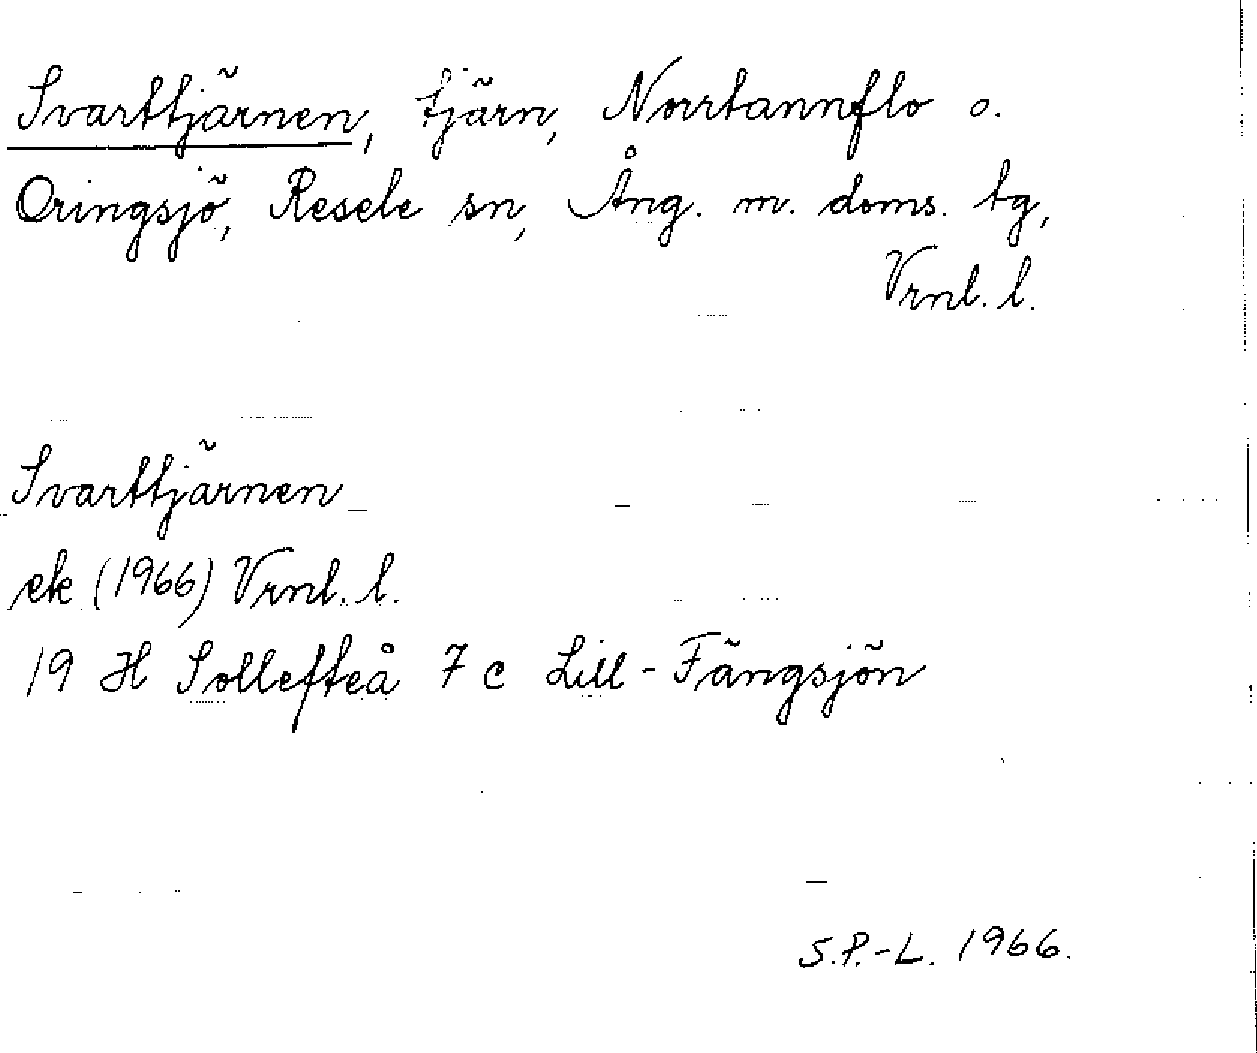 Svarttjärnen, tjärn, Norrtannflo o.
Oringsjö, Resele sn, Ång. m. doms. tg,
Vrnl. l.
Svarttjärnen
ek (1966) Vrnl. l.
19 H Sollefteå 7 c Lill-Fängsjön
S.P.-L. 1966.